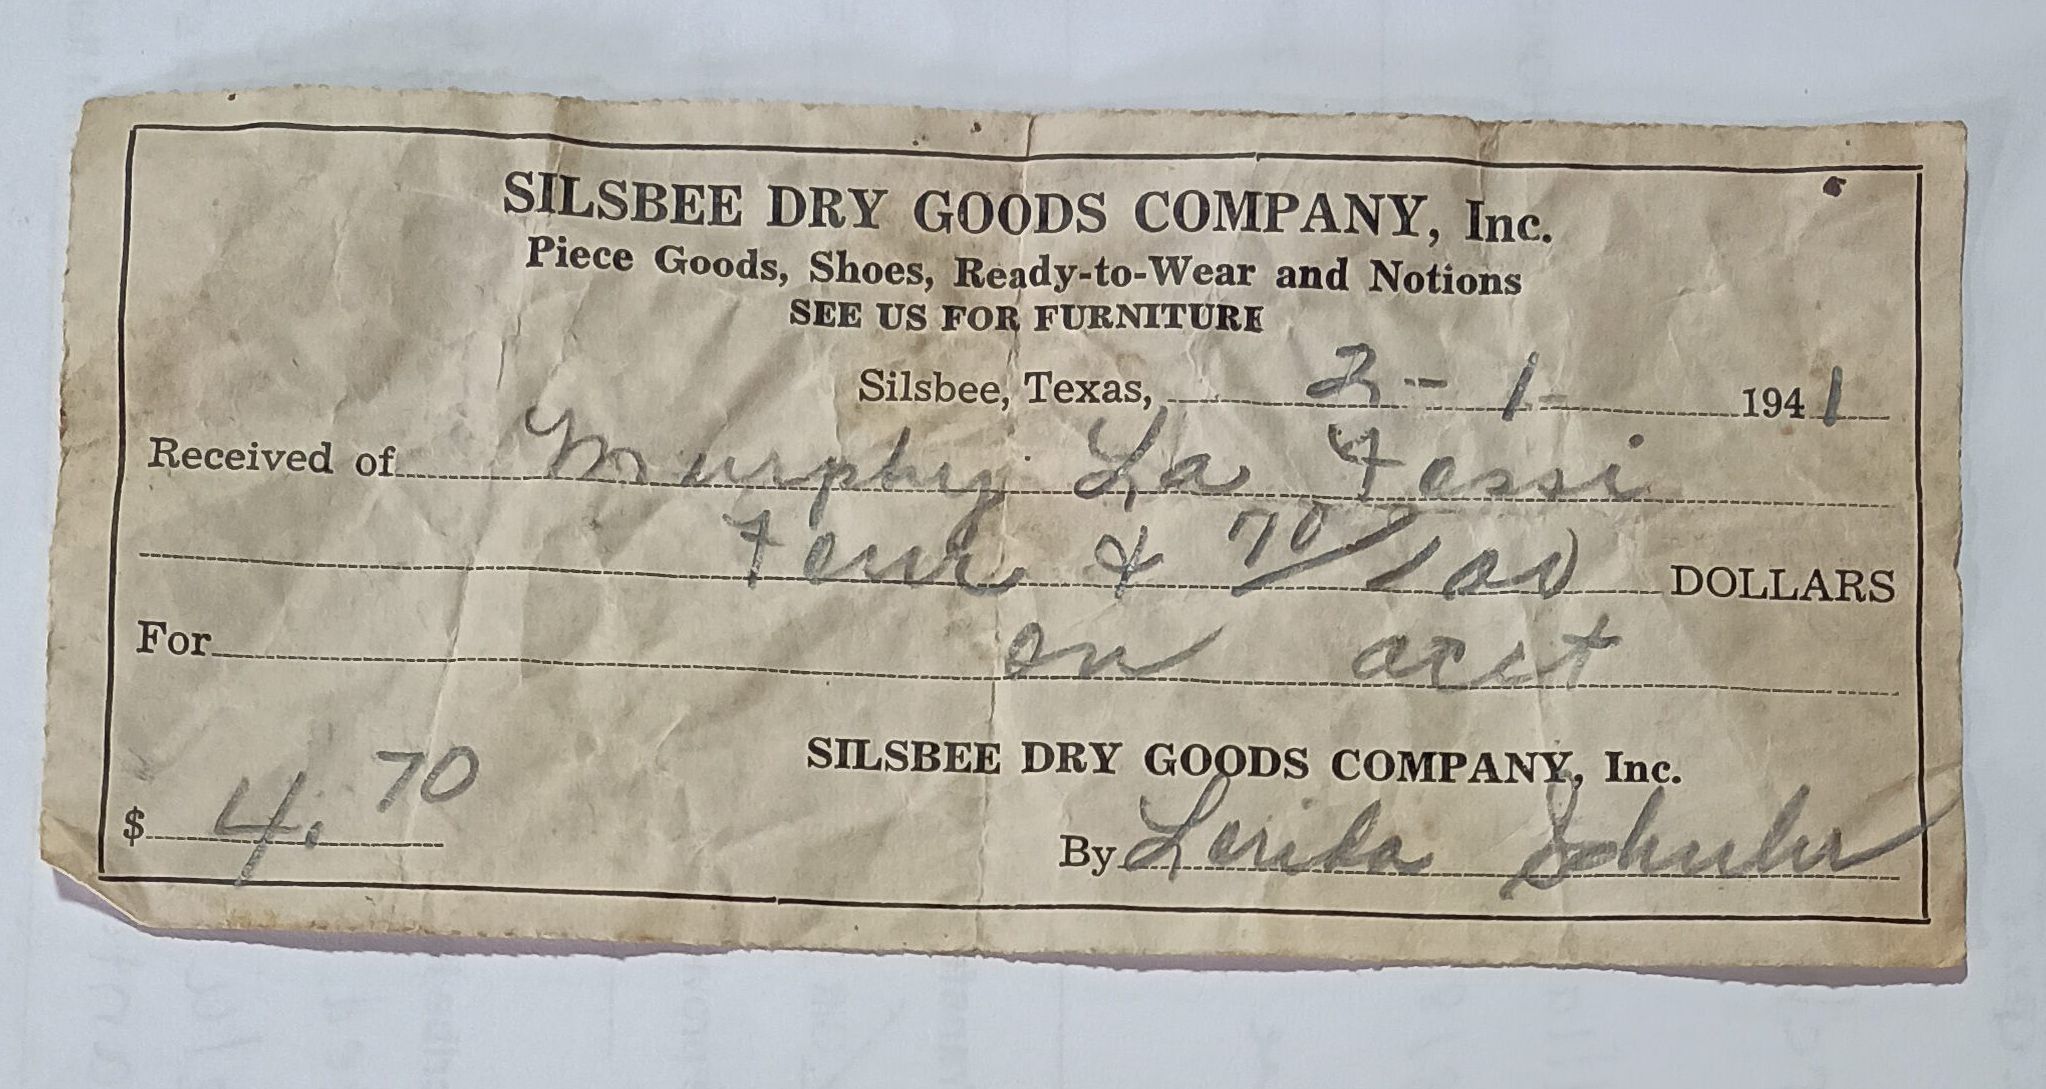 SILSBEE DRY GOODS COMPANY, Inc.
Piece Goods, Shoes, Ready-to-Wear and Notions
SEE US FOR FURNITURE
Silsbee, Texas, 2-1- 1941
Received of Murphy La Fossi
Four & 70/100 DOLLARS
For on acct
SILSBEE DRY GOODS COMPANY, Inc.
$ 4.70
By Schuler